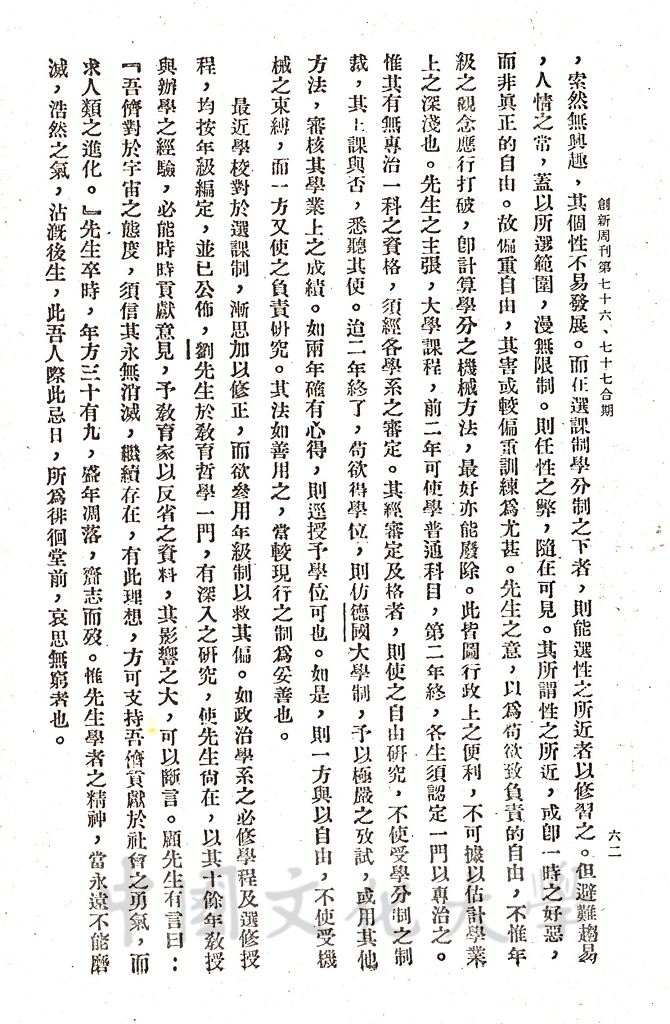 創新周刊第七十六、七十七合期
六二
，索然無興趣，其個性不易發展。而在選課制學分制之下者，則能選性之所近者以修習之。但避難趨易
，人情之常，蓋以所選範圍，漫無限制。則任性之弊，隨在可見。其所謂性之所近，或卽一時之好惡，
而非眞正的自由。故偏重自由，其害或較偏重訓練爲尤甚。先生之意，以爲苟欲致負責的自由，不惟年
級之觀念應行打破，卽計算學分之機械方法，最好亦能廢除。此皆圖行政上之便利，不可據以估計學業
上之深淺也。先生之主張，大學課程，前二年可使學普通科目，第二年終，各生須認定一門以專治之。
惟其有無專治一科之資格，須經各學系之審定。其經審定及格者，則使之自由研究，不使受學分制之制
裁，其上課與否，悉聽其便。迨二年終了，苟欲得學位，則仿德國大學制，予以極嚴之攷試，或用其他
方法，審核其學業上之成績。如兩年確有心得，則逕授予學位可也。如是，則一方與以自由，不使受機
械之束縛，而一方又使之負責研究。其法如善用之，當較現行之制爲妥善也。
最近學校對於選課制，漸思加以修正，而欲參用年級制以救其偏。如政治學系之必修學程及選修授
程，均按年級編定，並已公佈，劉先生於敎育哲學一門，有深入之硏究，使先生尙在，以其十餘年敎授
與辦學之經驗，必能時時貢獻意見，予敎育家以反省之資料，其影響之大，可以斷言。顧先生有言曰：
『吾儕對於宇宙之態度，須信其永無消滅，繼續存在，有此理想，方可支持吾儕貢獻於社會之勇氣，而
求人類之進化。』先生卒時，年方三十有九，盛年凋落，齎志而歿。惟先生學者之精神，當永遠不能磨
滅，浩然之氣，沾溉後生，此吾人際此忌日，所爲徘徊堂前，哀思無窮者也。
中國文化大學